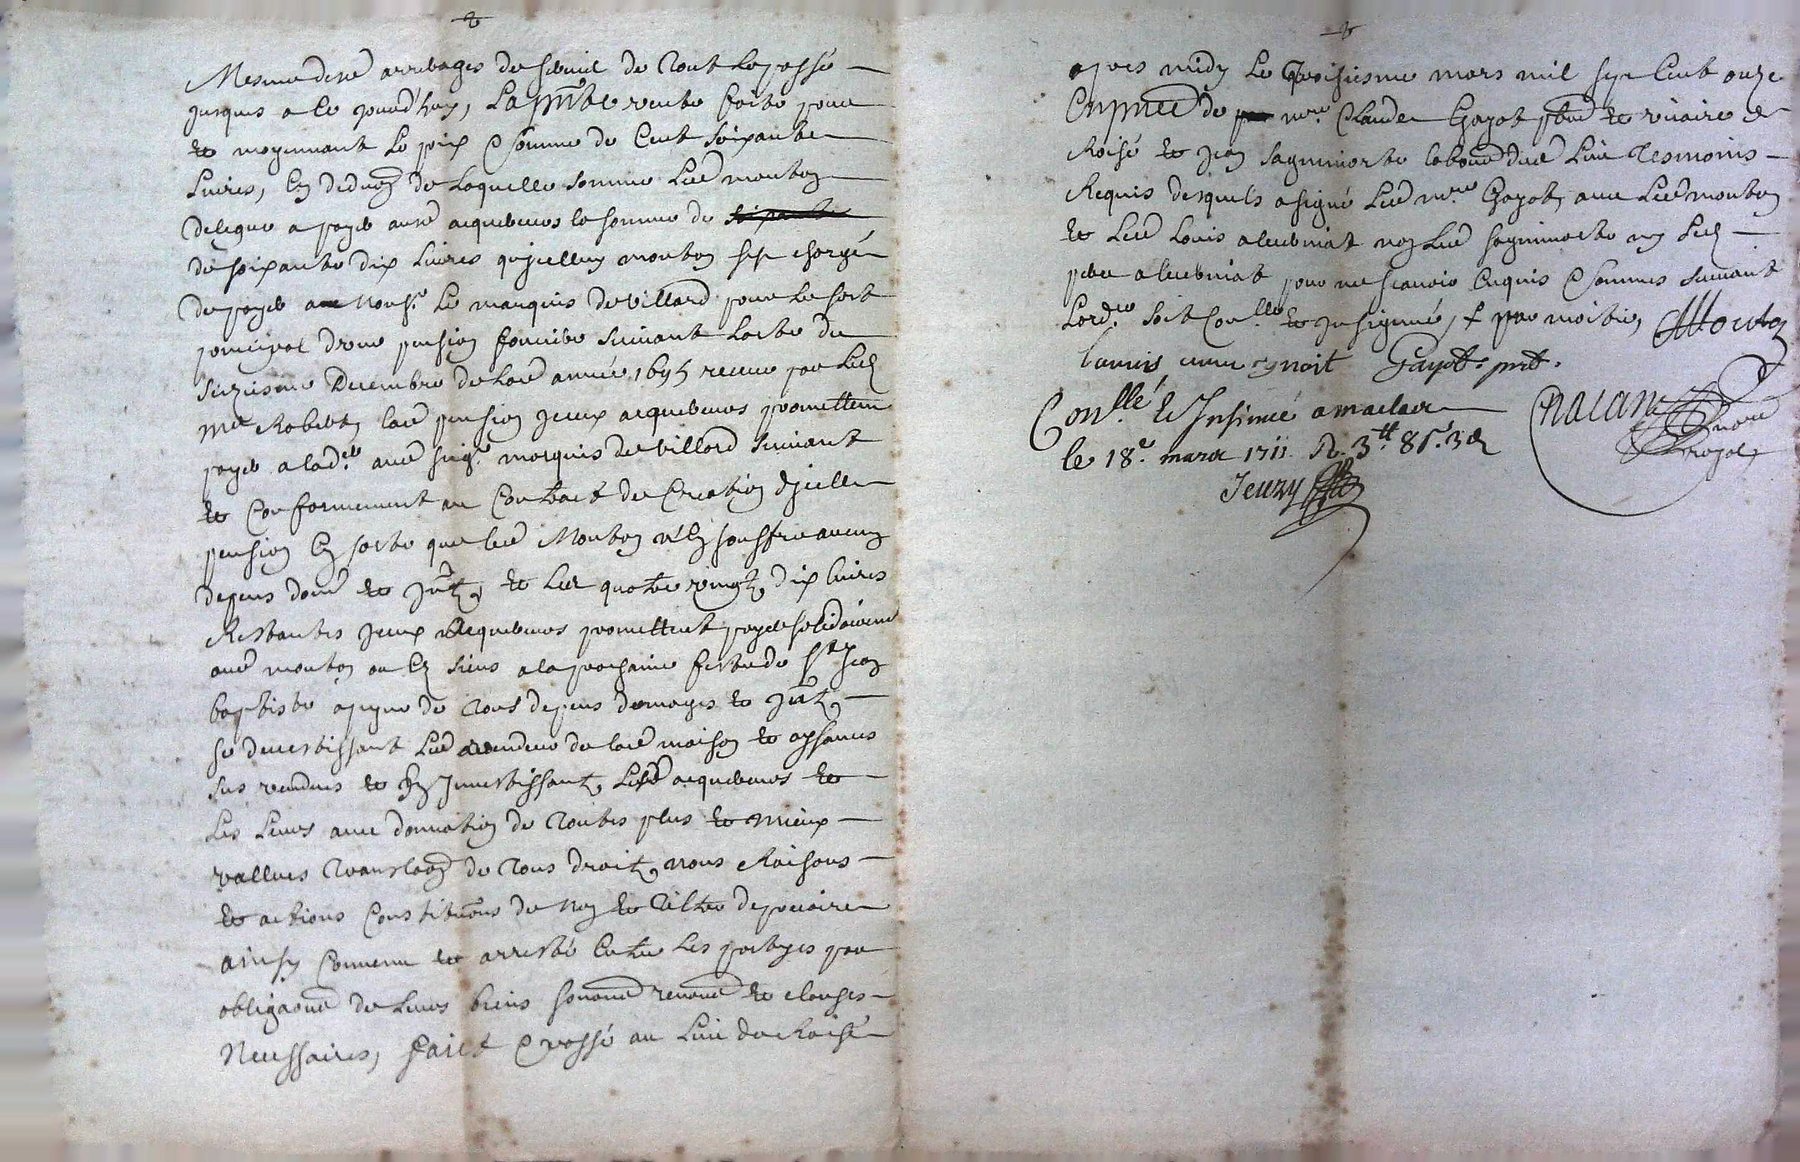 Mesme desd arrerages de servit de tout le passé
jusques a ce jourd'huy, La pnte vente faite pour
et moyennant le prix & somme de Cent soixante
Livres, En deduon de laquelle somme Led mouton
delegue a payer auxd acquereurs la somme de
de soixante dix Livres qu'jcelluy mouton s'est chargé
de payer a Monsr Le marquis de Villard pour le sort
principal d'une pension fonciere suivant l'acte du
Decembre de lad année 1695 receue par Led
Me Robert, lad pension jceux acquereurs promettent
payer a lad. aud seigr. marquis de Villard suivant
et Conformement au Contract de Creation d'jcelle
pension En sorte que led Mouton n'En souffre aucuns
depens dom et jnts, et Les quatre vingt dix livres
Restantes jceux Acquereurs promettent payer solidairemt
aud mouton ou Es siens a la prochaine feste de St Jean
baptiste a peyne de tous depens domages et jnts,
se devestissant Led vendeur de lad maison et aysances
sus vendues et En jnvestissant Lesd acquereurs et
Les Leurs avec donnation de toutes plus et mieux
vallues translaon de tous droits, noms Raisons
et actions Constituons de Noy et Tiltre de precaire
ainsy Convenu et arresté Entre Les partyes par
obligaons de Leurs biens renon et clauses
Necessaires, fait & passé au Lieu de Roisé
apres midy Le troisiesme mars mil sept Cent onze
En pnce de mre. Claude Gayot pbre et vicaire de
Roisé et jean sagnimorte laboureur dud Lieu Tesmoins
Requis desquels a signé Led mre Gayot, avec Led mouton
et Led Louis alenbniat non Led sagnimorte ny Led
pour ne sçavoir Enquis & sommés suivant
L'ordce. soit Conllé et jnsignué, par moitié, Mouton
Gayot. prt.
Conllé & Jnsinué a maclas
le 18e. mars 1711 R. 3tt 8s. 3d
Jeury
Chalan
nore
royal